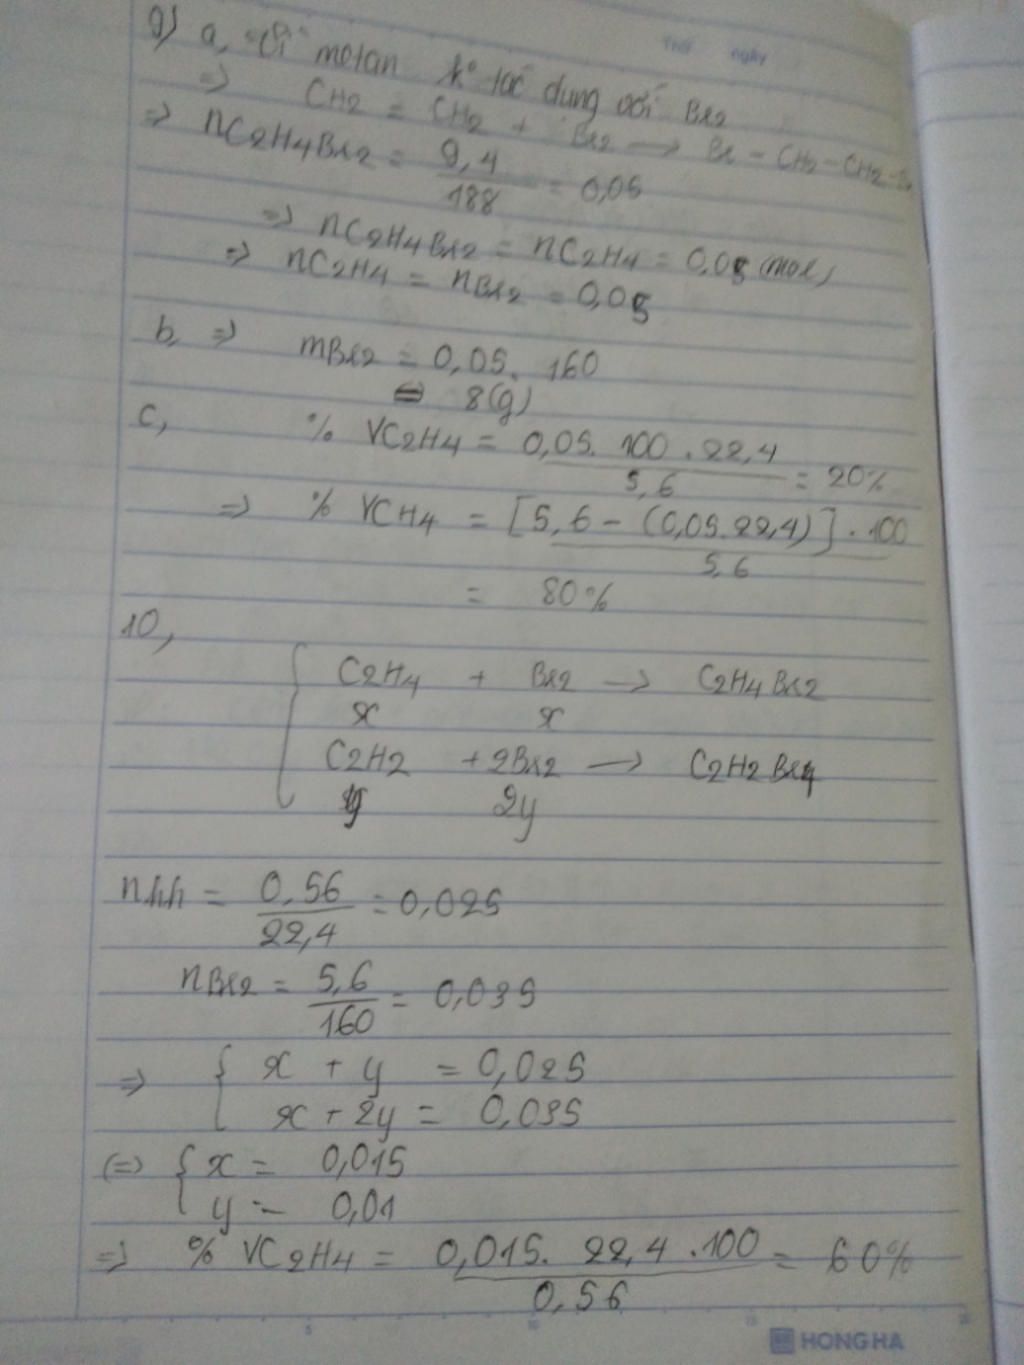 Thứ ngày
9) a, Vì metan k° tác dụng với Br2
=> CH2 = CH2 + Br2 → Br - CH2 - CH2 - Br
=> nC2H4Br2 = 9,4/188 = 0,05
=> nC2H4Br2 = nC2H4 = 0,05 (mol)
=> nC2H4 = nBr2 = 0,05
b, => mBr2 = 0,05. 160
= 8(g)
c, % VC2H4 = 0,05. 100 . 22,4/5,6 = 20%
=> % VCH4 = [5,6 - (0,05.22,4)] . 100/5,6
= 80%
10,
C2H4 + Br2 → C2H4Br2
x x
C2H2 + 2Br2 → C2H2Br4
y 2y
nhh = 0,56/22,4 = 0,025
nBr2 = 5,6/160 = 0,035
=> { x + y = 0,025
x + 2y = 0,035
(=) { x = 0,015
y = 0,01
=> % VC2H4 = 0,015. 22,4 .100/0,56 = 60%
5 10 15 20
HONG HA